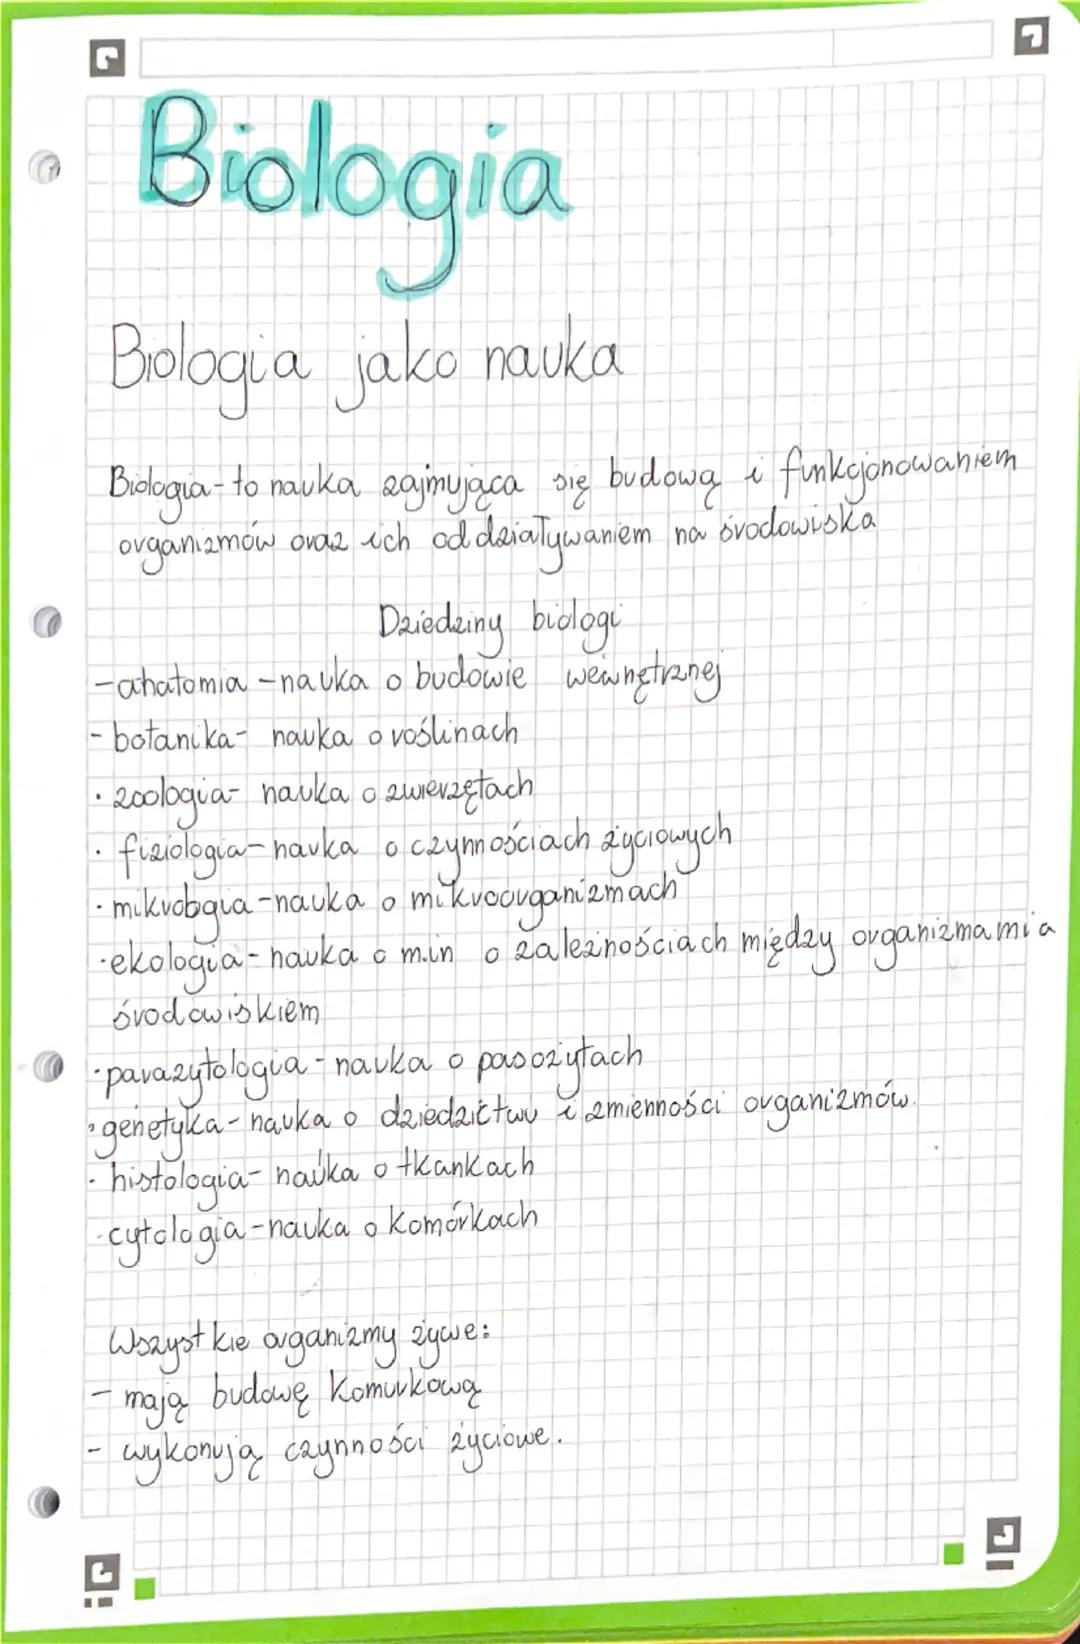 Biologia
Biologia jako nauka
Biologia - to nauka zajmująca się budową i funkcjonowaniem
organizmów oraz ich oddziaływaniem na środowiska
Dziedziny biologi
- anatomia - nauka o budowie wewnętrznej
- botanika - nauka o roślinach
· zoologia - nauka o zwierzętach
· fiziologia - nauka o czynnościach życiowych
· mikrobgia - nauka o mikroorganizmach
· ekologia - nauka o m.in o zależnościach między organizmami a
środowiskiem
· parazytologia - nauka o pasożytach
· genetyka - nauka o dziedzictwu i zmienności organizmów.
· histologia - nauka o tkankach
· cytologia - nauka o komórkach
Wszystkie organizmy żywe:
- mają budowę komurkową
- wykonują czynności życiowe.